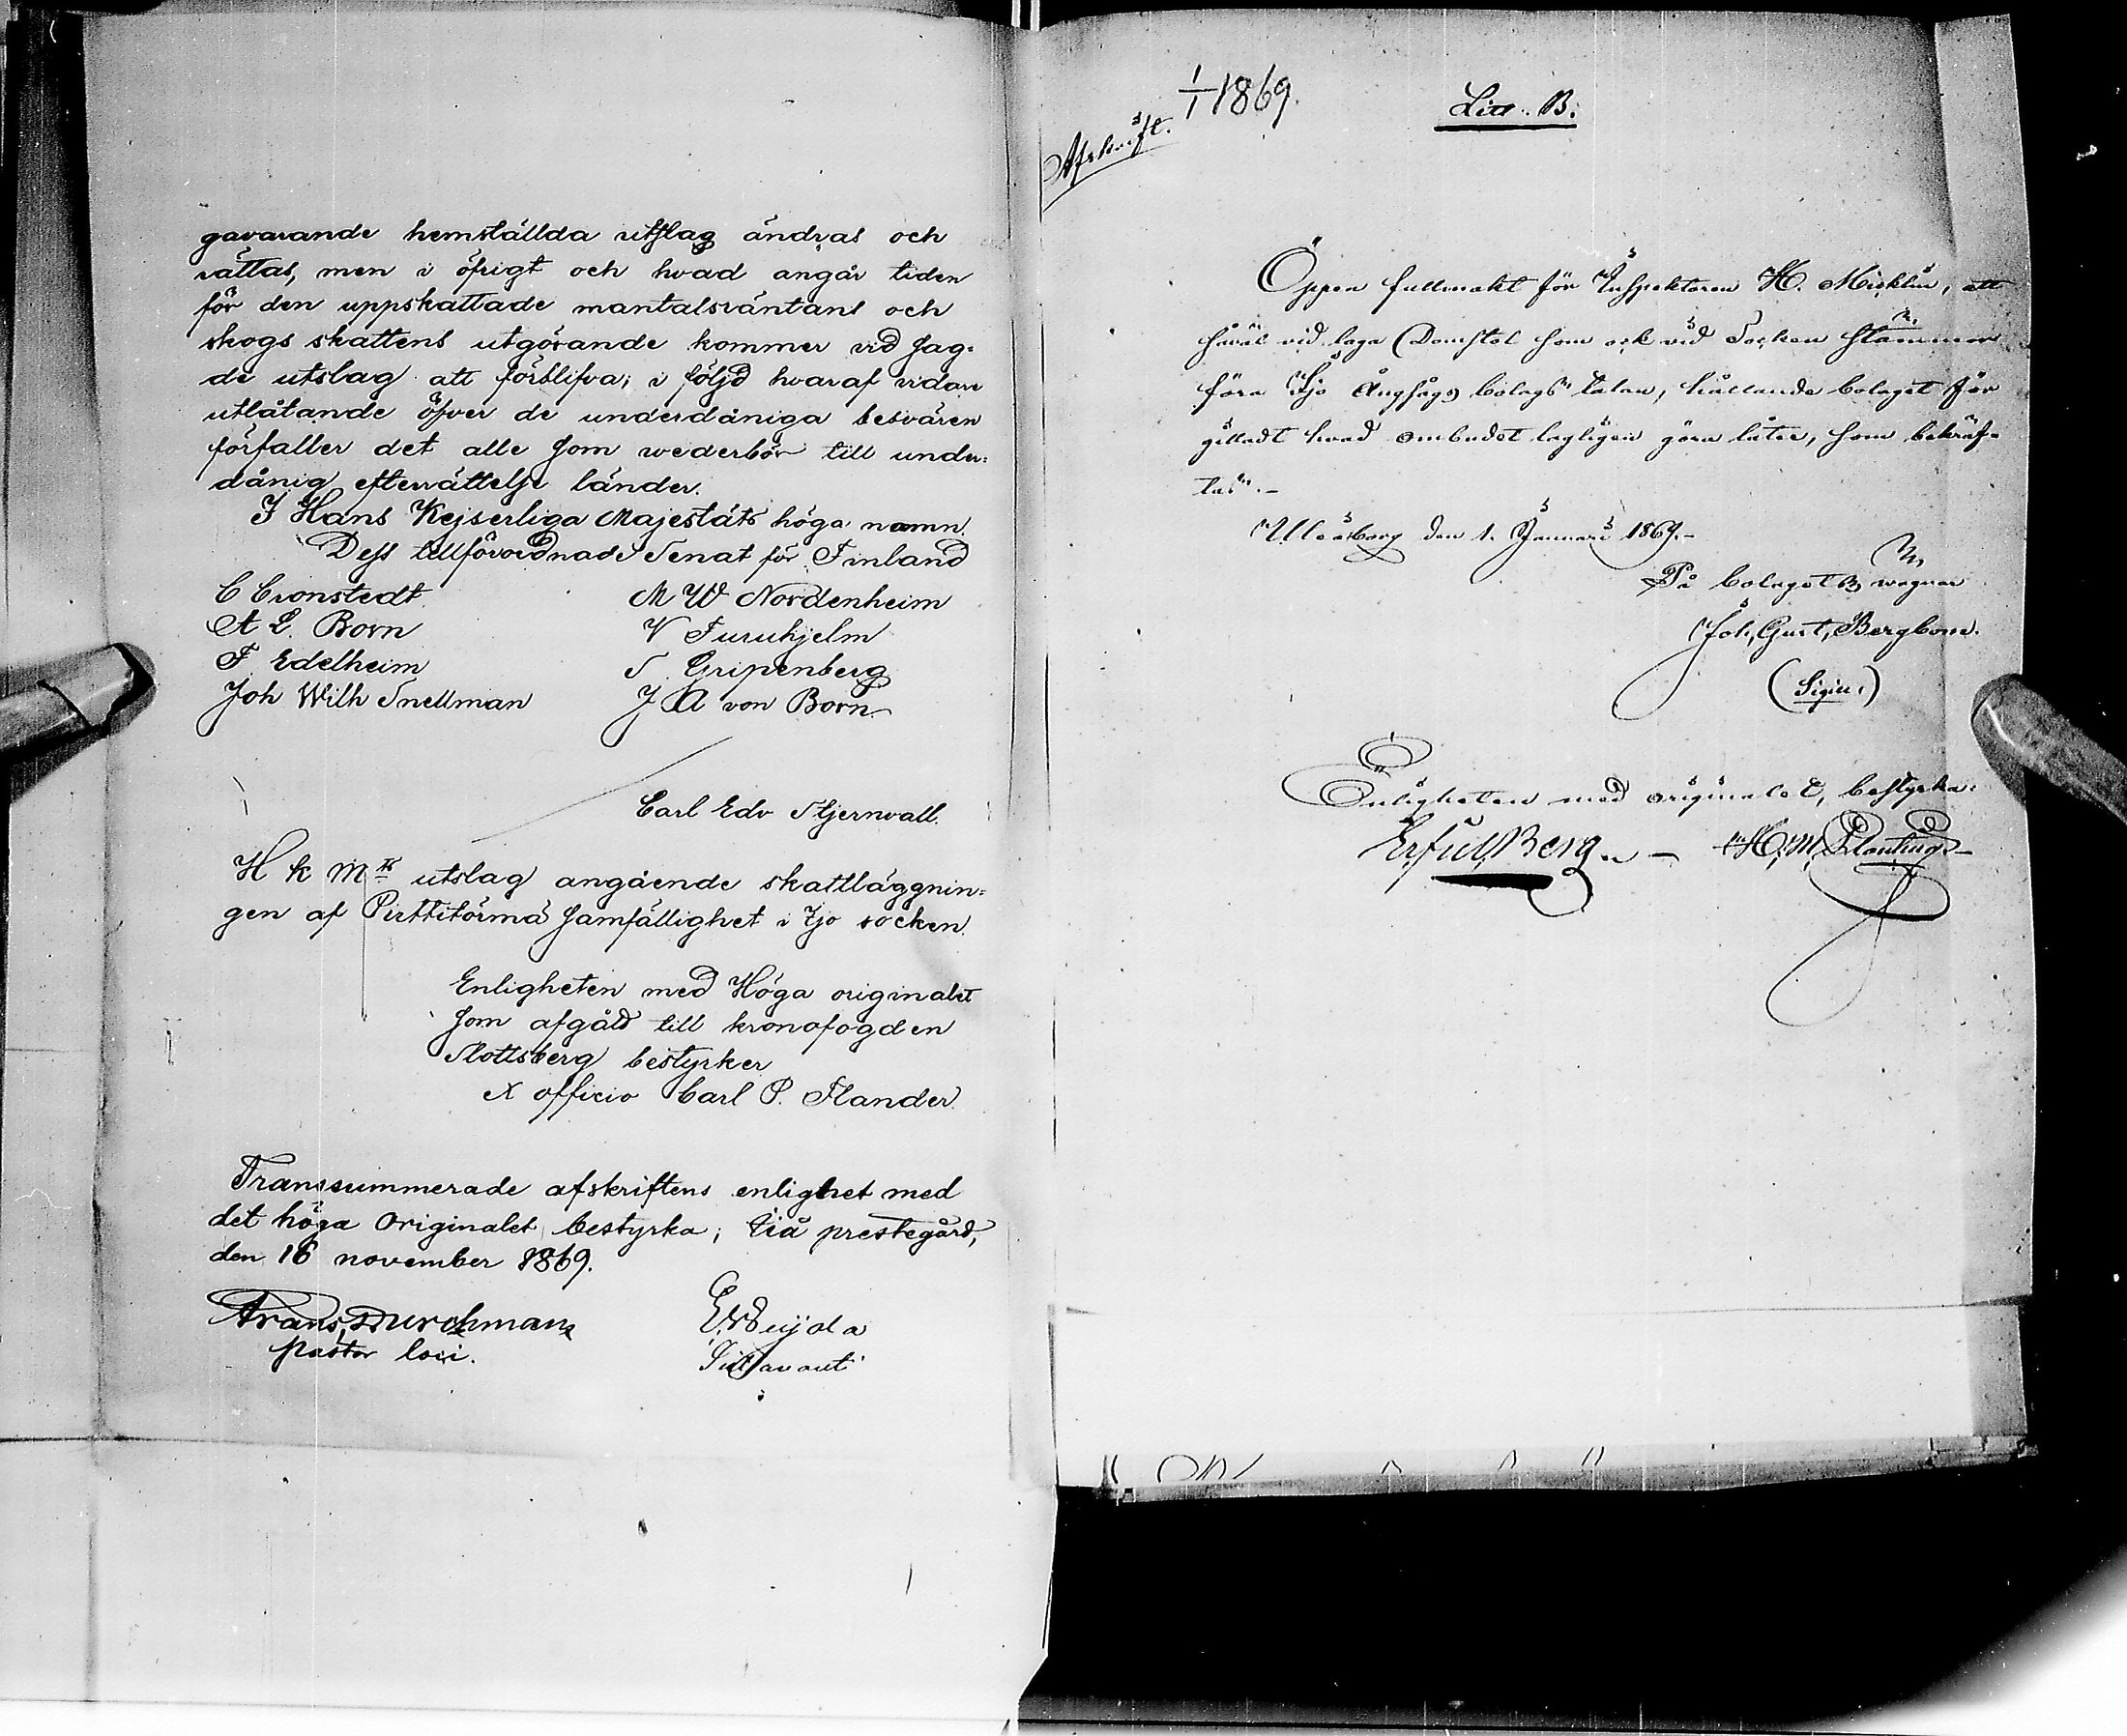 gavarande hemställda utslag ändras och
rättas, men i öfrigt och hvad angår tiden
för den uppskattade mantalsräntans och
skogs skattens utgörande kommer vid sag-
de utslag att förblifva; i följd hvaraf vidare
utlåtande öfver de underdåniga besvären
förfaller det alle som wederbör till under-
dånig efterrättelse länder.
I Hans Kejserliga Majestäts höga namn
Dess tillförordnade Senat för Finland
C Cronstedt
M W Nordenheim
A E. Born
V Furuhjelm
F Edelheim
S Gripenberg
Joh Wilh Snellman
J A von Born
Carl Edv Stjernvall.
H k Mts utslag angående skattläggnin-
gen af Pirttitörmä samfällighet i Ijo socken.
Enligheten med Höga originalet
som afgått till kronofogden
Slottsberg bestyrker
ex officio Carl P. Flander.
Transsummerade afskriftens enlighet med
det höga Originalet bestyrka; Iiå prestegård,
den 16 november 1869.
Frans Durchman
pastor loci.
1/1 1869.
Litt. B.
Afskrift.
Öppen fullmakt för Inspektoren H. Micklin, att
såväl vid laga Domstol som ock vid Socken stämmor
föra Ijo Ångsågs bolags talan, hållande bolaget för
gilladt hvad ombudet lagligen göra låter, som bekräf-
tas".-
Uleåborg den 1. Januari 1869.-
På bolagets wägnar
Joh, Gust, Bergbom.
(Sigill.)
Enligheten med originalet, bestyrka: